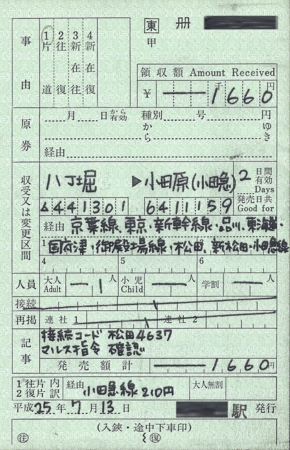 事由
1 片道
2 往復
3 新在往
4 新在復
東 冊
甲
領収額 Amount Received
¥ 1660 円
原券
月 日から有効 種別 号 ゆき
から
経由
収受又は変更区間
八丁堀 ▶ 小田原(小田急) 2 日間有効 Days
441301 6411159 発売日共 Good for
経由 1 京葉線、東京、新幹線・品川、東海道・
国府津、御殿場線、松田、新松田・小田急線
4 5 6
人員 大人 Adult 1 小児 Child 学割
接続
再掲 連社 1 連社 2
記事
接続コード 松田4637
マルス指令 確認
発売額計 1,660 円
1 往片
2 復片
内訳 経由 小田急線210円 大人無割
平成 25年 7月 13日 駅 発行
(入鋏・途中下車印)